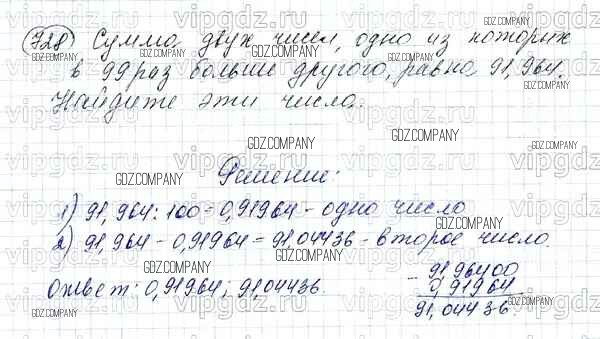 728 Сумма двух чисел, одно из которых
в 99 раз больше другого, равна 91,964.
Найдите эти числа.
Решение:
1) 91,964 : 100 = 0,91964 - одно число
2) 91,964 - 0,91964 = 91,04436 - второе число.
Ответ: 0,91964; 91,04436.
- 91,96400
0,91964
91,04436
vipgdz.com
GDZ.COMPANY